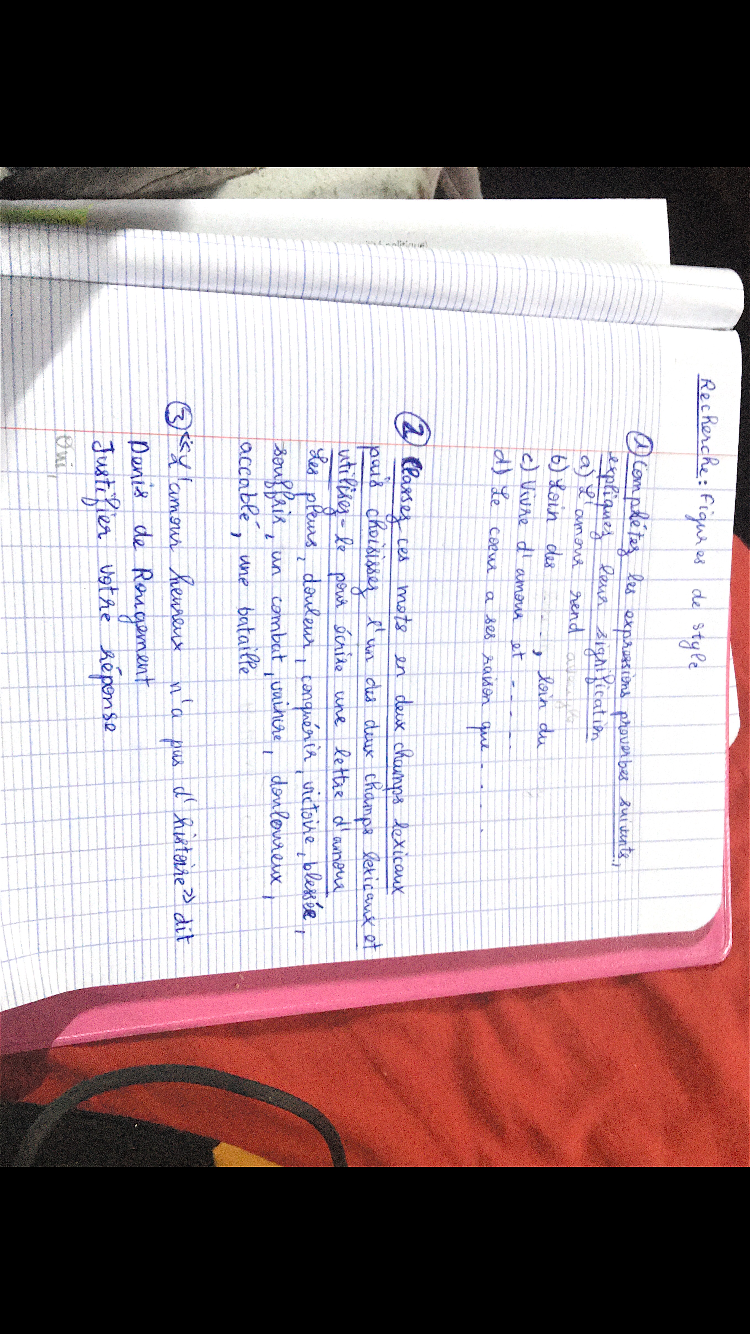 Recherche : figures de style
① Complétez les expressions proverbes suivants,
expliquez leur signification
a) L'amour rend aveugle
b) Loin des ....., loin du
c) Vivre d'amour et - - - - -
d) Le coeur a ses raison que - - - -
② Classez ces mots en deux champs lexicaux
puis choisissez l'un des deux champs lexicaux et
utilisez-le pour écrire une lettre d'amour
Les pleurs, douleur, conquérir, victoire, blessée,
souffrir, un combat, vaincre, douloureux,
accablé, une bataille
③ «L'amour heureux n'a pas d'histoire» dit
Denis de Rongement
Justifier votre réponse
Oui,